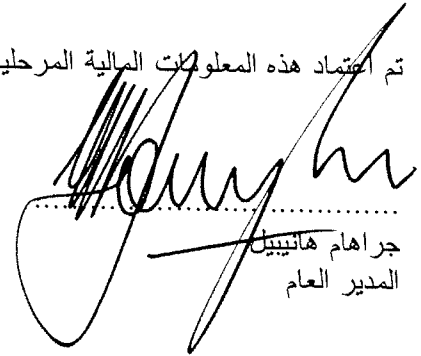 تم اعتماد هذه المعلومات المالية المرحلي
جراهام هانيبيل
المدير العام